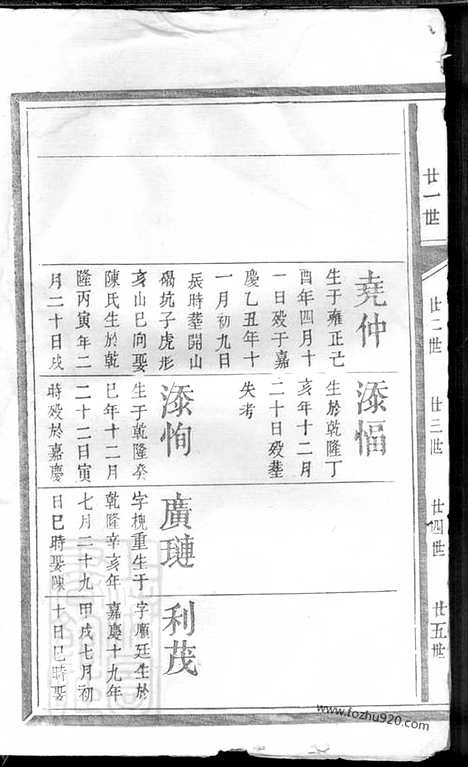 廿一世
廿二世
廿三世
廿四世
廿五世
堯仲
生于雍正己
酉年四月十
一日歿于嘉
慶乙丑年十
一月初九日
辰時塟開山
碣坑子虎形
亥山巳向娶
陳氏生於乾
隆丙寅年二
月二十日戌
添愊
生於乾隆丁
亥年十二月
二十日歿塟
失考
添恂
生于乾隆癸
巳年十二月
二十二日寅
時歿於嘉慶
廣璉
字槐重生于
乾隆辛亥年
七月二十九
日巳時娶陳
利茂
字廕廷生於
嘉慶十九年
甲戌七月初
十日巳時娶
www.tozhu920.com